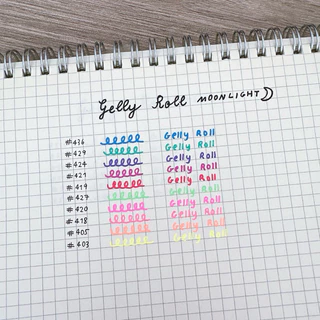 Gelly Roll MOONLIGHT
#436 Gelly Roll
#429 Gelly Roll
#424 Gelly Roll
#421 Gelly Roll
#419 Gelly Roll
#427 Gelly Roll
#420 Gelly Roll
#418 Gelly Roll
#405 Gelly Roll
#403 Gelly Roll